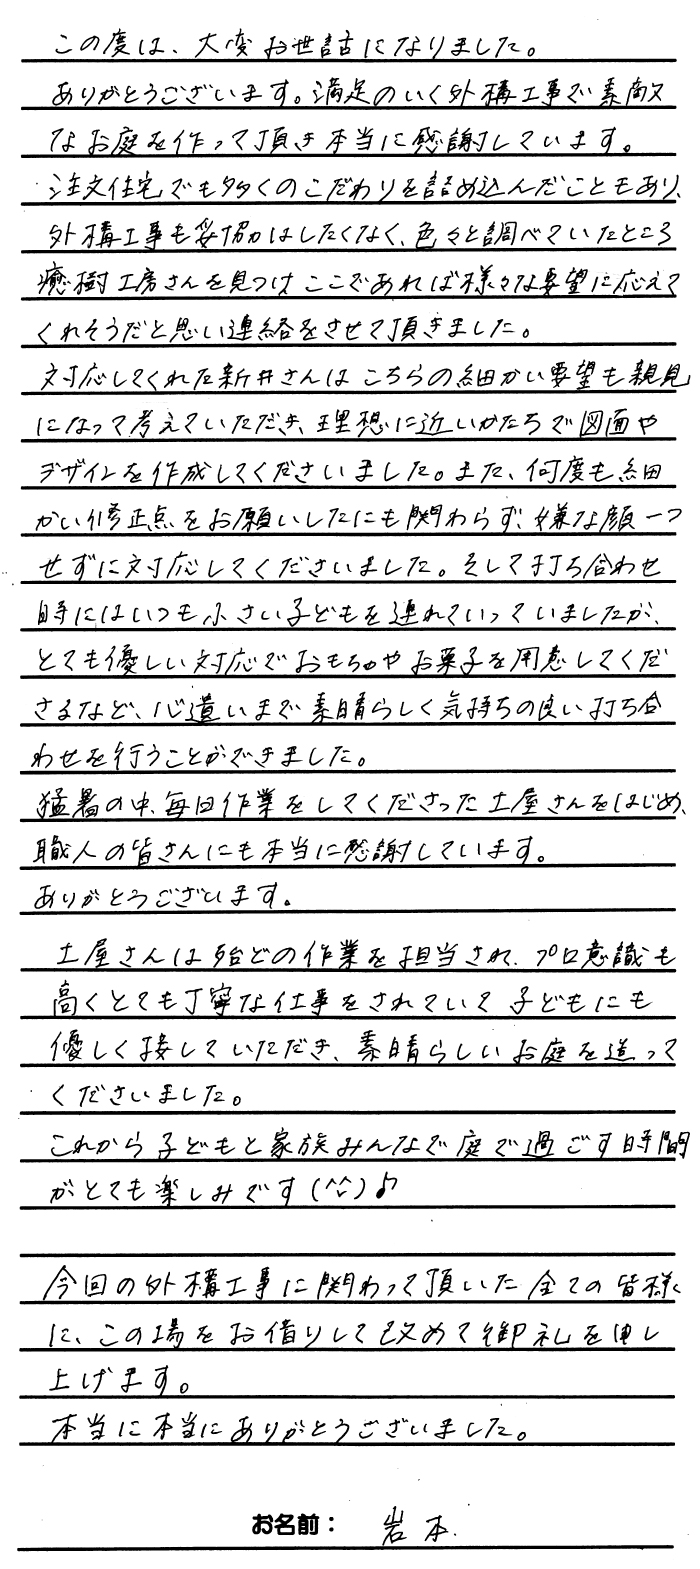 この度は、大変お世話になりました。
ありがとうございます。満足のいく外構工事で素敵
なお庭を作って頂き本当に感謝しています。
注文住宅でも多くのこだわりを詰め込んだこともあり、
外構工事も妥協はしたくなく、色々と調べていたところ
癒樹工房さんを見つけ ここであれば様々な要望に応えて
くれそうだと思い連絡をさせて頂きました。
対応してくれた新井さんは こちらの細かい要望も親見
になって考えていただき、理想に近いかたちで図面や
デザインを作成してくださいました。また、何度も細
かい修正点をお願いしたにも関わらず、嫌な顔一つ
せずに対応してくださいました。そして打ち合わせ
時にはいつも小さい子どもを連れていっていましたが、
とても優しい対応でおもちゃやお菓子を用意してくだ
さるなど、心遣いまで素晴らしく気持ちの良い打ち合
わせを行うことができました。
猛暑の中、毎日作業をしてくださった土屋さんをはじめ、
職人の皆さんにも本当に感謝しています。
ありがとうございます。
土屋さんは殆どの作業を担当され、プロ意識も
高くとても丁寧な仕事をされていて 子どもにも
優しく接していただき、素晴らしいお庭を造って
くださいました。
これから子どもと家族みんなで庭で過ごす時間
がとても楽しみです(^^)♪
今回の外構工事に関わって頂いた全ての皆様
に、この場をお借りして改めて御礼を申し
上げます。
本当に本当にありがとうございました。
お名前： 岩本.